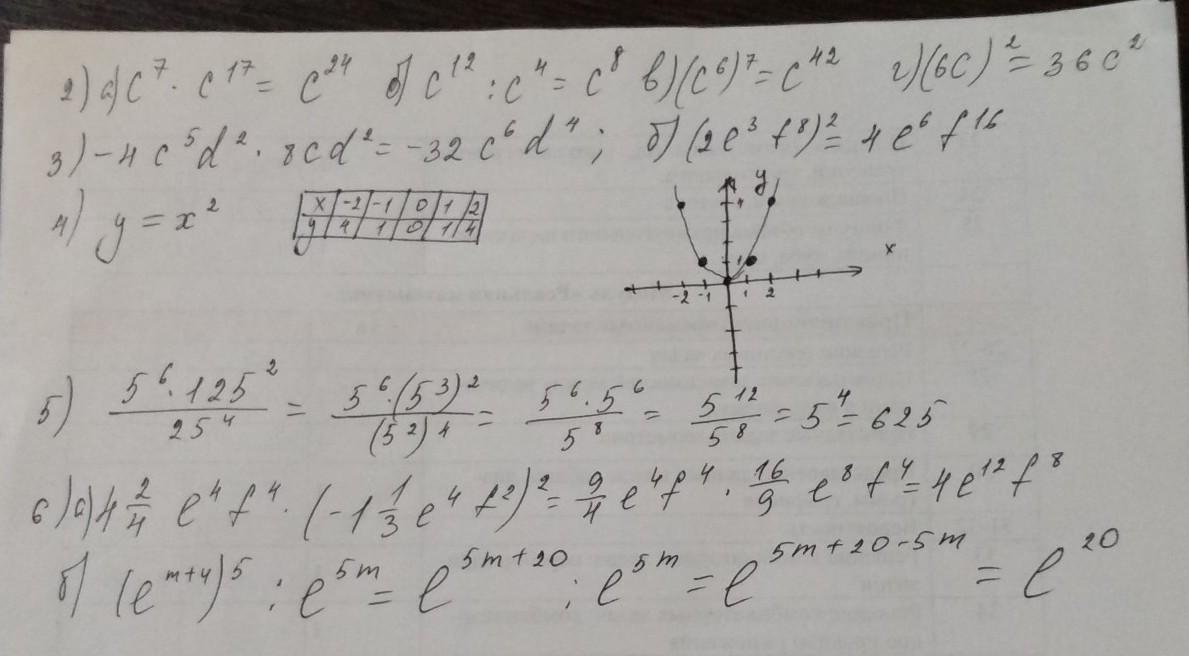 2) а) c⁷ · c¹⁷ = c²⁴ б) c¹² : c⁴ = c⁸ в) (c⁶)⁷ = c⁴² г) (6c)² = 36c²
3) -4c⁵d² · 8cd² = -32c⁶d⁴ ; б) (2e³f⁸)² = 4e⁶f¹⁶
4) y = x²
x -2 -1 0 1 2
y 4 1 0 1 4
y
4
1
x
-2 -1 1 2
5) 5⁶·125²/25⁴ = 5⁶·(5³)²/(5²)⁴ = 5⁶·5⁶/5⁸ = 5¹²/5⁸ = 5⁴ = 625
6) а) 4 2/4 e⁴f⁴ · (-1 1/3 e⁴f²)² = 9/4 e⁴f⁴ · 16/9 e⁸f⁴ = 4e¹²f⁸
б) (e^{m+4})⁵ : e^{5m} = e^{5m+20} : e^{5m} = e^{5m+20-5m} = e²⁰